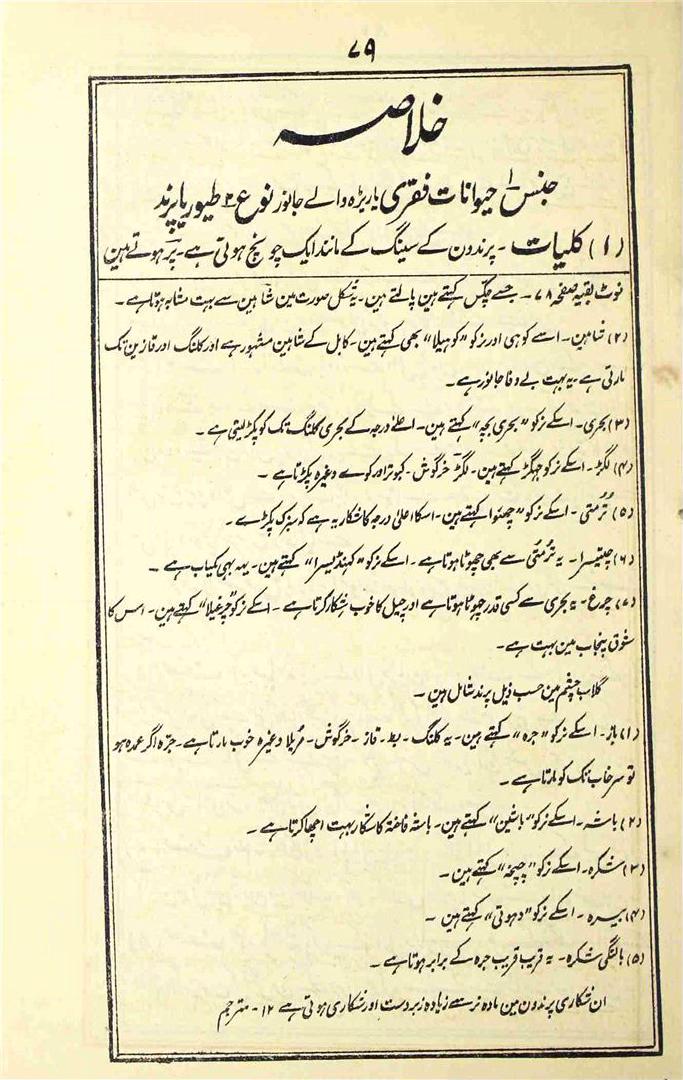 ۷۹
خلاصہ
جنس ۱ حیوانات فقری یا ریڑہ والے جانور نوع ۲ طیور یا پرند
(۱) کلیات - پرندون کے سینگ کے مانند ایک چونچ ہوتی ہے - پَر ہوتے ہین
نوٹ بقیہ صفحہ ۷۸ - جسے چپکس کہتے ہین پالتے ہین - یہ شکل صورت مین شاہین سے بہت مشابہ ہوتا ہے -
(۲) شاہین - اسے کوہی اور نر کو "کوہیلا" بھی کہتے ہین - کابل کے شاہین مشہور ہے اور کلنگ اور قازین تک
مارتی ہے - یہ بہت بے وفا جانور ہے -
(۳) بحری - اسکے نر کو "بحری بچہ" کہتے ہین - اعلےٰ درجہ کے بحری کلنگ تک کو پکڑ لیتی ہے -
(۴) لگڑ - اسکے نر کو جھگڑ کہتے ہین - لگڑ خرگوش - کبوتر اور کوے وغیرہ پکڑتا ہے -
(۵) تُرمتی - اسکے نر کو "چھٹوا" کہتے ہین - اسکا اعلےٰ درجہ کا شکار یہ ہے کہ بزک پکڑے -
(۶) چیتسرا - یہ تُرمتی سے بھی چھوٹا ہوتا ہے - اسکے نر کو "کہنڈیسرا" کہتے ہین - یہہ بہی کمیاب ہے -
(۷) چرغ - یہ بحری سے کسی قدر چھوٹا ہوتا ہے اور چیل کا خوب شکار کرتا ہے - اسکے نر کو "چرغیلا" کہتے ہین - اس کا
شوق پنجاب مین بہت ہے -
گلاب چشم مین حسب ذیل پرند شامل ہین -
(۱) باز - اسکے نر کو "جرہ" کہتے ہین - یہ کلنگ - بط - قاز - خرگوش - مریلا وغیرہ خوب مارتا ہے - جرّہ اگر عمدہ ہو
تو سرخاب تک کو مارتا ہے -
(۲) باشہ - اسکے نر کو "باشین" کہتے ہین - باشہ فاختہ کا شکار بہت اچھا کرتا ہے -
(۳) شکرہ - اسکے نر کو "چپخہ" کہتے ہین -
(۴) بیسرہ - اسکے نر کو "دہوتی" کہتے ہین -
(۵) بالنگی شکرہ - یہ قریب قریب جرہ کے برابر ہوتا ہے -
ان شکاری پرندون مین مادہ نر سے زیادہ زبردست اور شکاری ہوتی ہے ۱۲ - مترجم